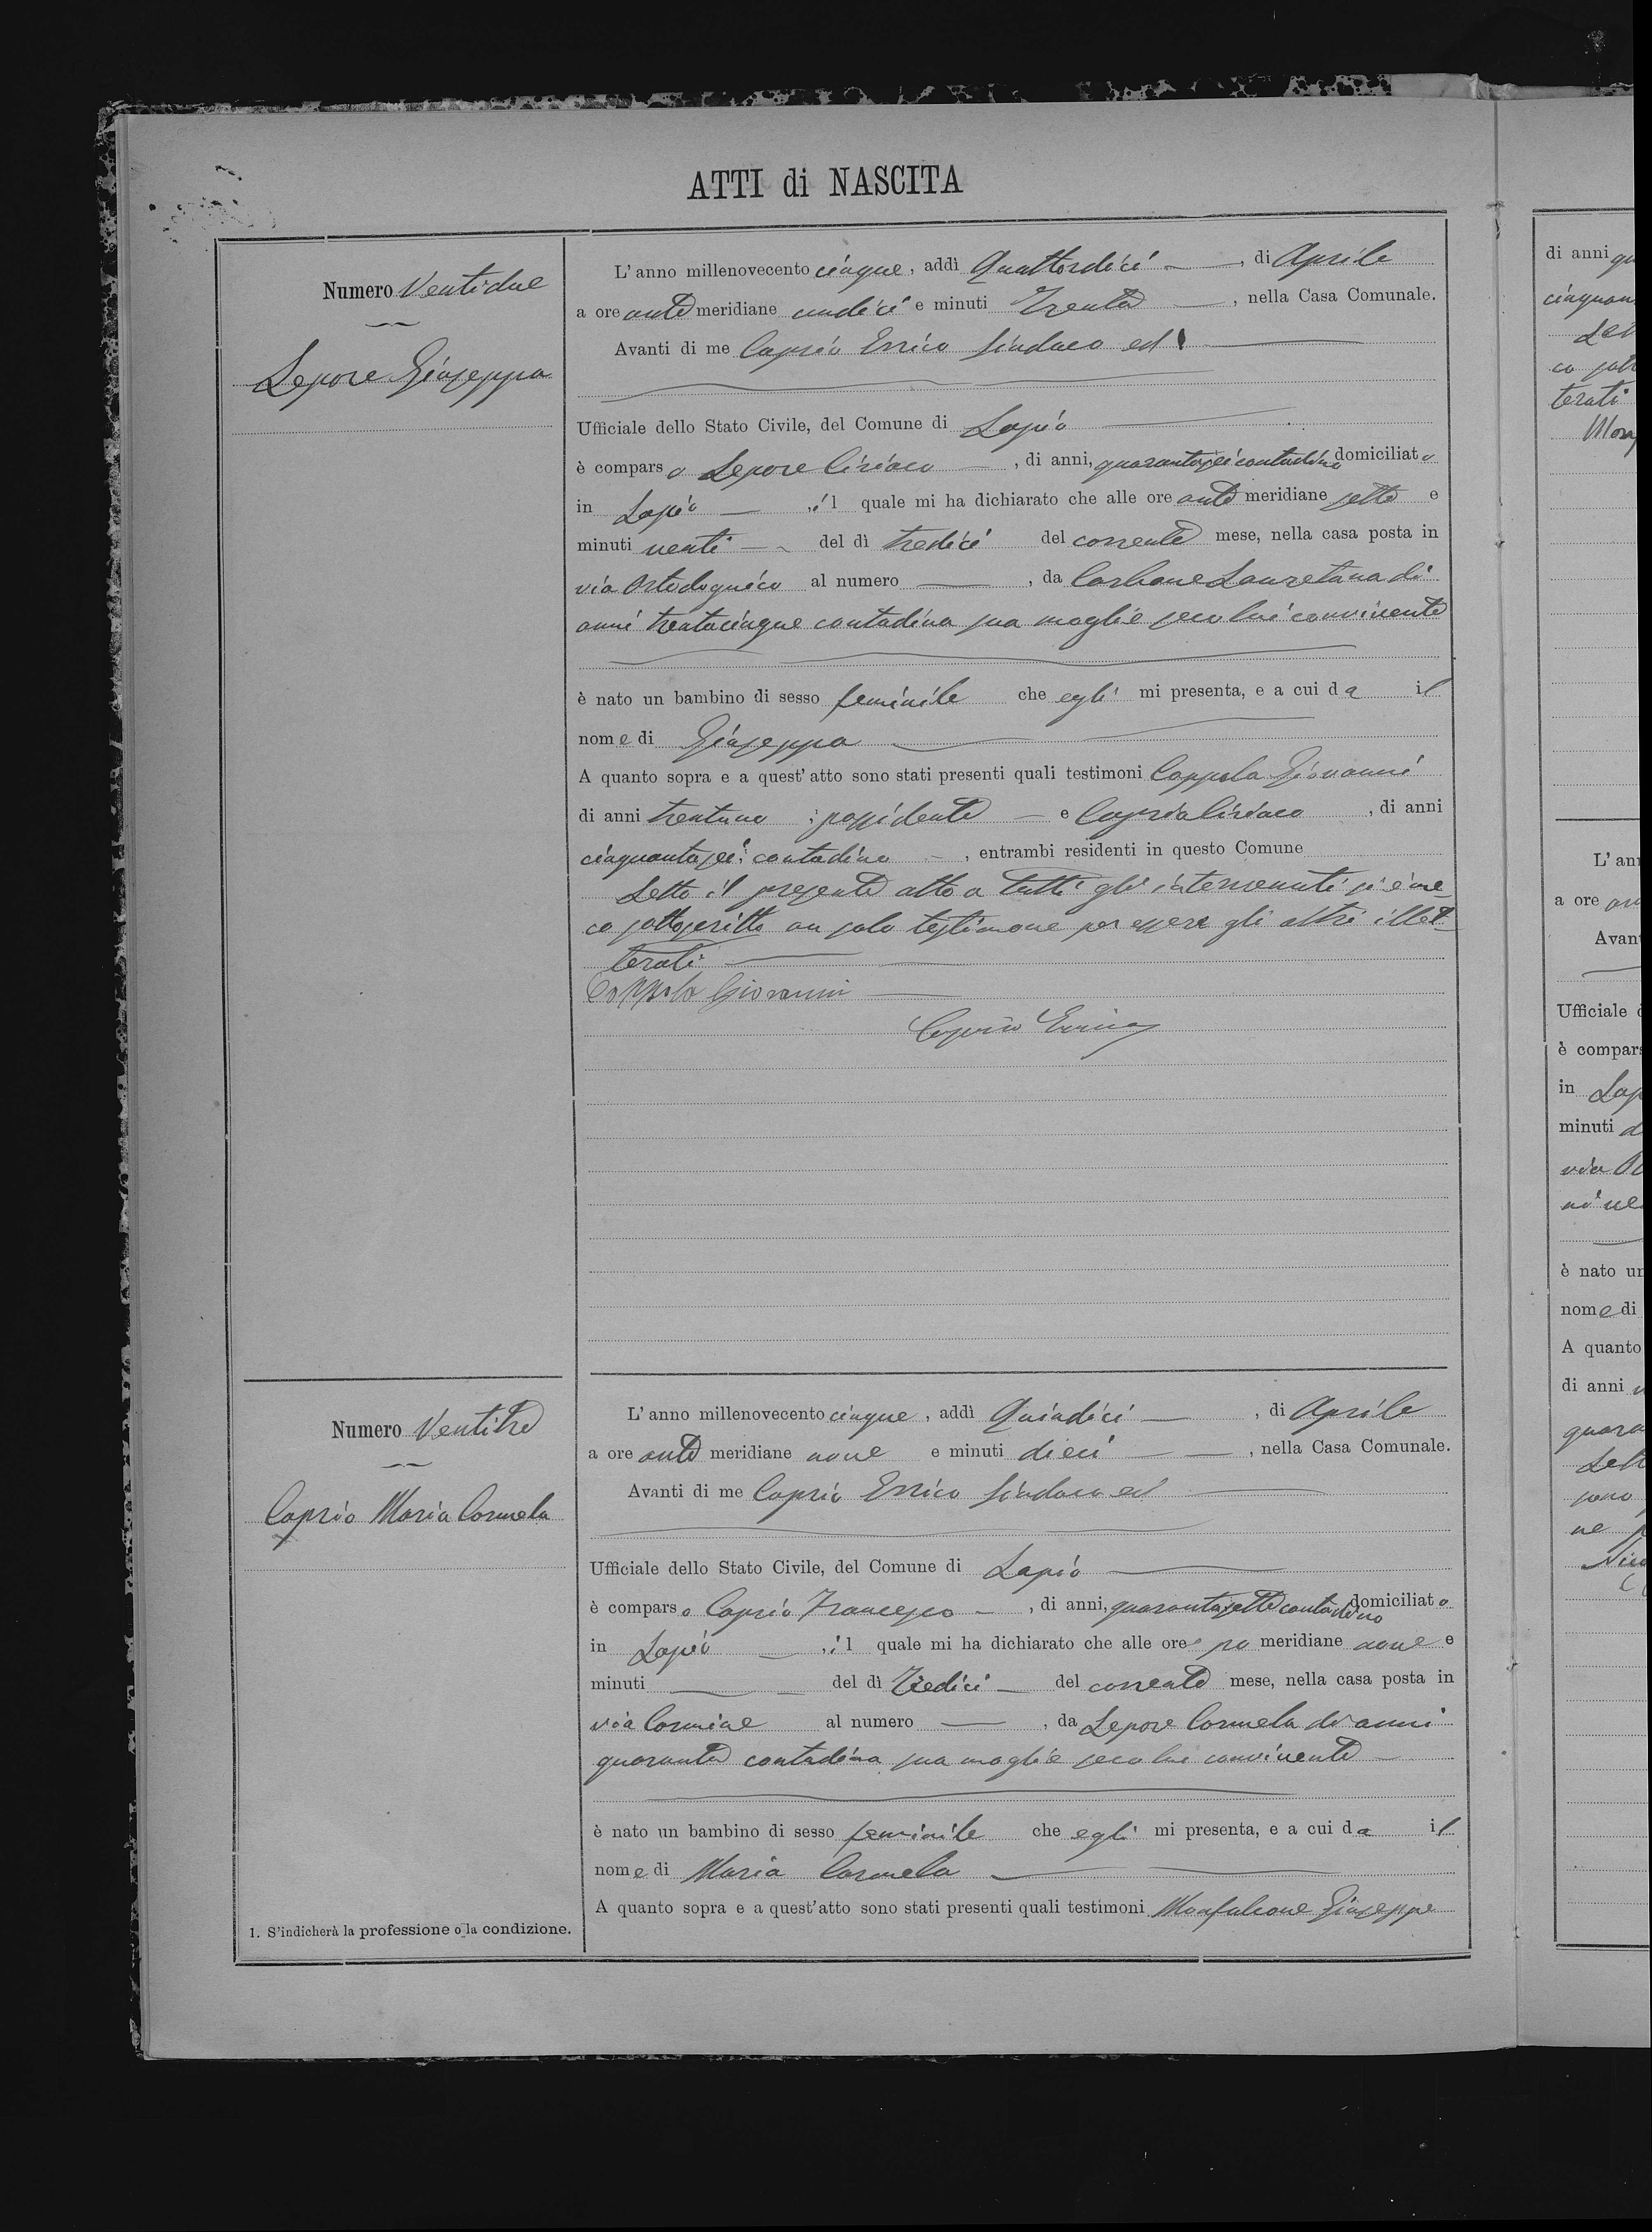 ATTI di NASCITA
Numero Ventidue
Lepore Giuseppa
L'anno millenovecento cinque, addì Quattordici —, di Aprile
a ore ante meridiane undici e minuti Trenta —, nella Casa Comunale.
Avanti di me Caprio Errico Sindaco ed
Ufficiale dello Stato Civile, del Comune di Lapio
è comparso Lepore Ciriaco —, di anni, quarantasei contadino domiciliato
in Lapio — il quale mi ha dichiarato che alle ore ante meridiane sette e
minuti venti — del dì tredici del corrente mese, nella casa posta in
via al numero —, da Carbone Lauretana di
anni trentacinque contadina sua moglie seco lui convivente
è nato un bambino di sesso feminile che egli mi presenta, e a cui da il
nome di Giuseppa
A quanto sopra e a quest'atto sono stati presenti quali testimoni Coppola Giovanni
di anni trentuno possidente — e Caprio Ciriaco, di anni
cinquantasei contadino —, entrambi residenti in questo Comune
Letto il presente atto a tutti gli intervenuti si è me
co sottoscritto un solo testimone per essere gli altri illet
terati
Coppola Giovanni
Caprio Errico
Numero Ventitre
Caprio Maria Carmela
L'anno millenovecento cinque, addì Quindici —, di Aprile
a ore ante meridiane nove e minuti dieci —, nella Casa Comunale.
Avanti di me Caprio Errico Sindaco ed
Ufficiale dello Stato Civile, del Comune di Lapio
è comparso Caprio Francesco —, di anni, quarantasette contadino domiciliato
in Lapio — il quale mi ha dichiarato che alle ore po meridiane nove e
minuti — del dì Tredici — del corrente mese, nella casa posta in
via Carmine al numero —, da Lepore Carmela di anni
quaranta contadina sua moglie seco lui convivente —
è nato un bambino di sesso feminile che egli mi presenta, e a cui da il
nome di Maria Carmela
A quanto sopra e a quest'atto sono stati presenti quali testimoni Monfalcone Giuseppe
1. S'indicherà la professione o la condizione.
di anni
Ufficiale
in Lap
minuti
è nato un
nome di
A quanto
di anni